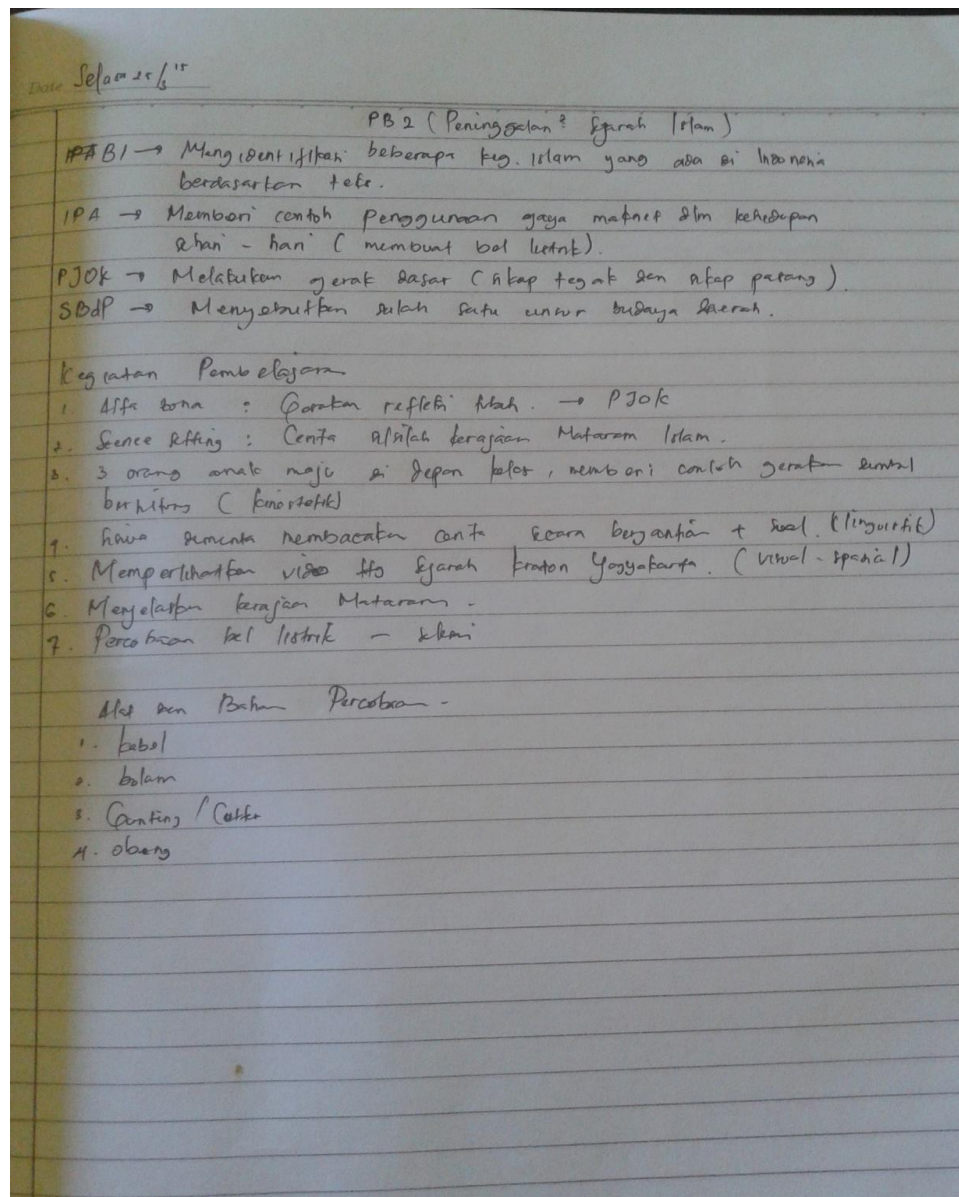 Date Selasa
PB 2 (Peninggalan² Sejarah Islam)
BI → Mengidentifikasi beberapa keg. Islam yang ada di Indonesia
berdasarkan teks.
IPA → Memberi contoh penggunaan gaya maknet dlm kehidupan
sehari - hari (membuat bel listrik).
PJOK → Melakukan gerak dasar (sikap tegak dan sikap pasang).
SBdP → Menyebutkan salah satu unsur budaya daerah.
Kegiatan Pembelajaran
1. Alfa zona : Gerakan refleksi → PJOK
2. Scence Setting : Cerita silsilah kerajaan Mataram Islam.
3. 3 orang anak maju di depan kelas, memberi contoh gerakan sambil
berhitung (kinestetik)
4. Siswa diminta membacakan cerita secara bergantian + soal. (linguistik)
5. Memperlihatkan video ttg Sejarah kraton Yogyakarta. (visual - spasial)
6. Menjelaskan kerajaan Mataram.
7. Percobaan bel listrik -
Alat dan Bahan Percobaan -
1. kabel
2. bolam
3. Gunting / Cutter
4. obeng